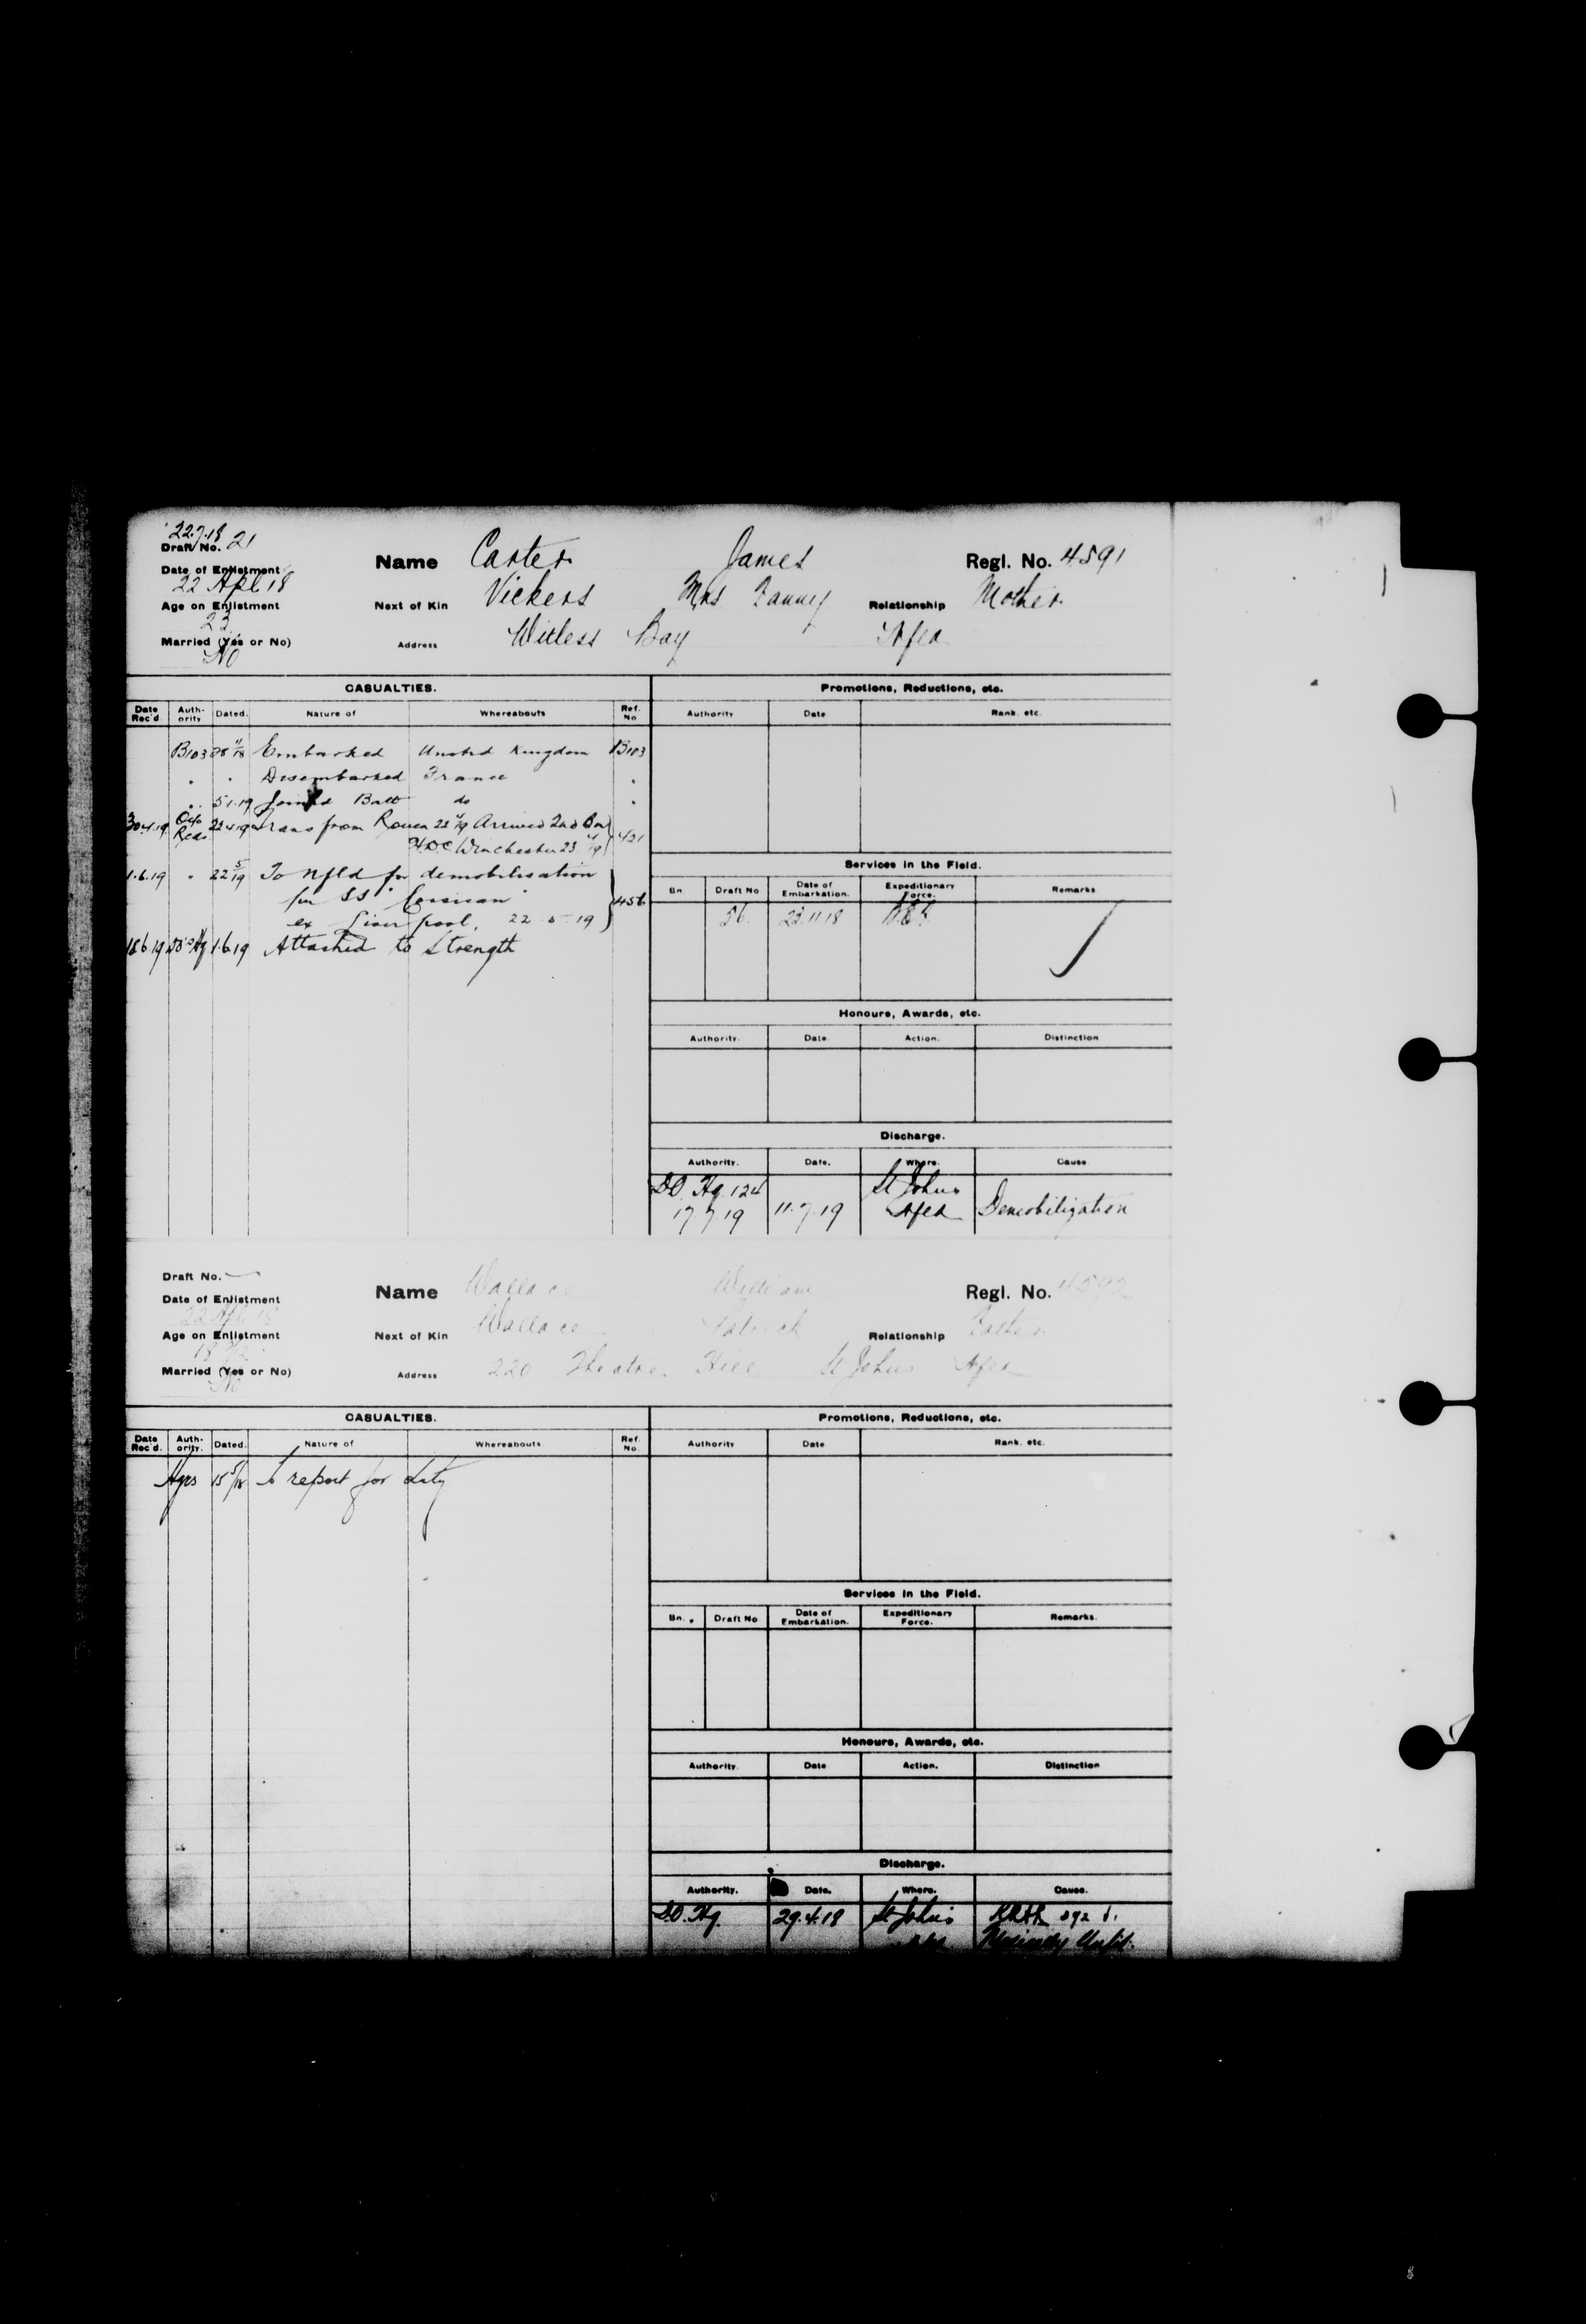 22.7.18
Draft No. 21
Name Carter James Regl. No. 4591
Date of Enlistment
22 Apl 18
Next of Kin Vickers Mrs Fanny Relationship Mother
Age on Enlistment
23
Address Witless Bay Nfld
Married (Yes or No)
No
CASUALTIES. Promotions, Reductions, etc.
Date Rec'd. Authority Dated. Nature of Whereabouts Ref. No Authority Date Rank, etc.
B103 28 11/18 Embarked United Kingdom B103
" " Disembarked France "
" 5.1.19 Joined Batt do "
30.4.19 Rec 23.4.19 Trans from Rouen 22 4/19 Arrived 2nd Bn
Winchester 23 4/19 421
Services in the Field.
1.6.19 " 22 5/19 To Nfld for demobilisation
Bn. Draft No Date of Embarkation. Expeditionary Force. Remarks
per SS "Corsican" 456
56 23.11.18
ex Liverpool, 22-5-19
18.6.19 DO Hq 1.6.19 Attached to Strength
Honours, Awards, etc.
Authority. Date. Action. Distinction
Discharge.
Authority. Date. Where. Cause
DO. Hq. 124 St Johns
17 7 19 11.7.19 Nfld Demobilization
Draft No. —
Name Wallace William Regl. No. 4592
Date of Enlistment
22 Apl 18
Next of Kin Wallace Patrick Relationship Father
Age on Enlistment
Address 220 Theatre Hill St Johns Nfld
Married (Yes or No)
No
CASUALTIES. Promotions, Reductions, etc.
Date Rec'd. Authority. Dated. Nature of Whereabouts Ref. No. Authority Date Rank, etc.
Hqrs 15 5/18 To report for duty
Services in the Field.
Bn. Draft No Date of Embarkation. Expeditionary Force. Remarks.
Honours, Awards, etc.
Authority. Date Action. Distinction
Discharge.
Authority. Date. Where. Cause.
D.O. Hq. 29.4.18 St Johns 392
Unfit.